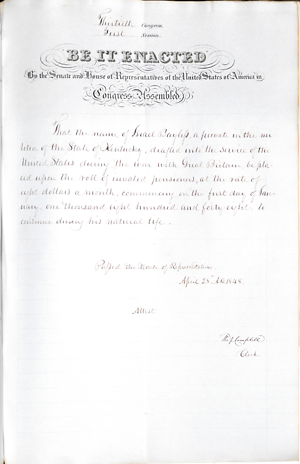 Thirtieth Congress
First Session
BE IT ENACTED
By the Senate and House of Representatives of the United States of America in
Congress Assembled
That the name of Israel Bayless, a private in the mi
litia of the State of Kentucky, drafted into the service of the
United States during the war with Great Britain be pla
ced upon the roll of invalid pensioners, at the rate of
eight dollars a month, commencing on the first day of Jan
uary, one thousand eight hundred and forty eight to
continue during his natural life.
Passed the House of Representatives
April 28 1848.
Attest
Campbell
Clerk